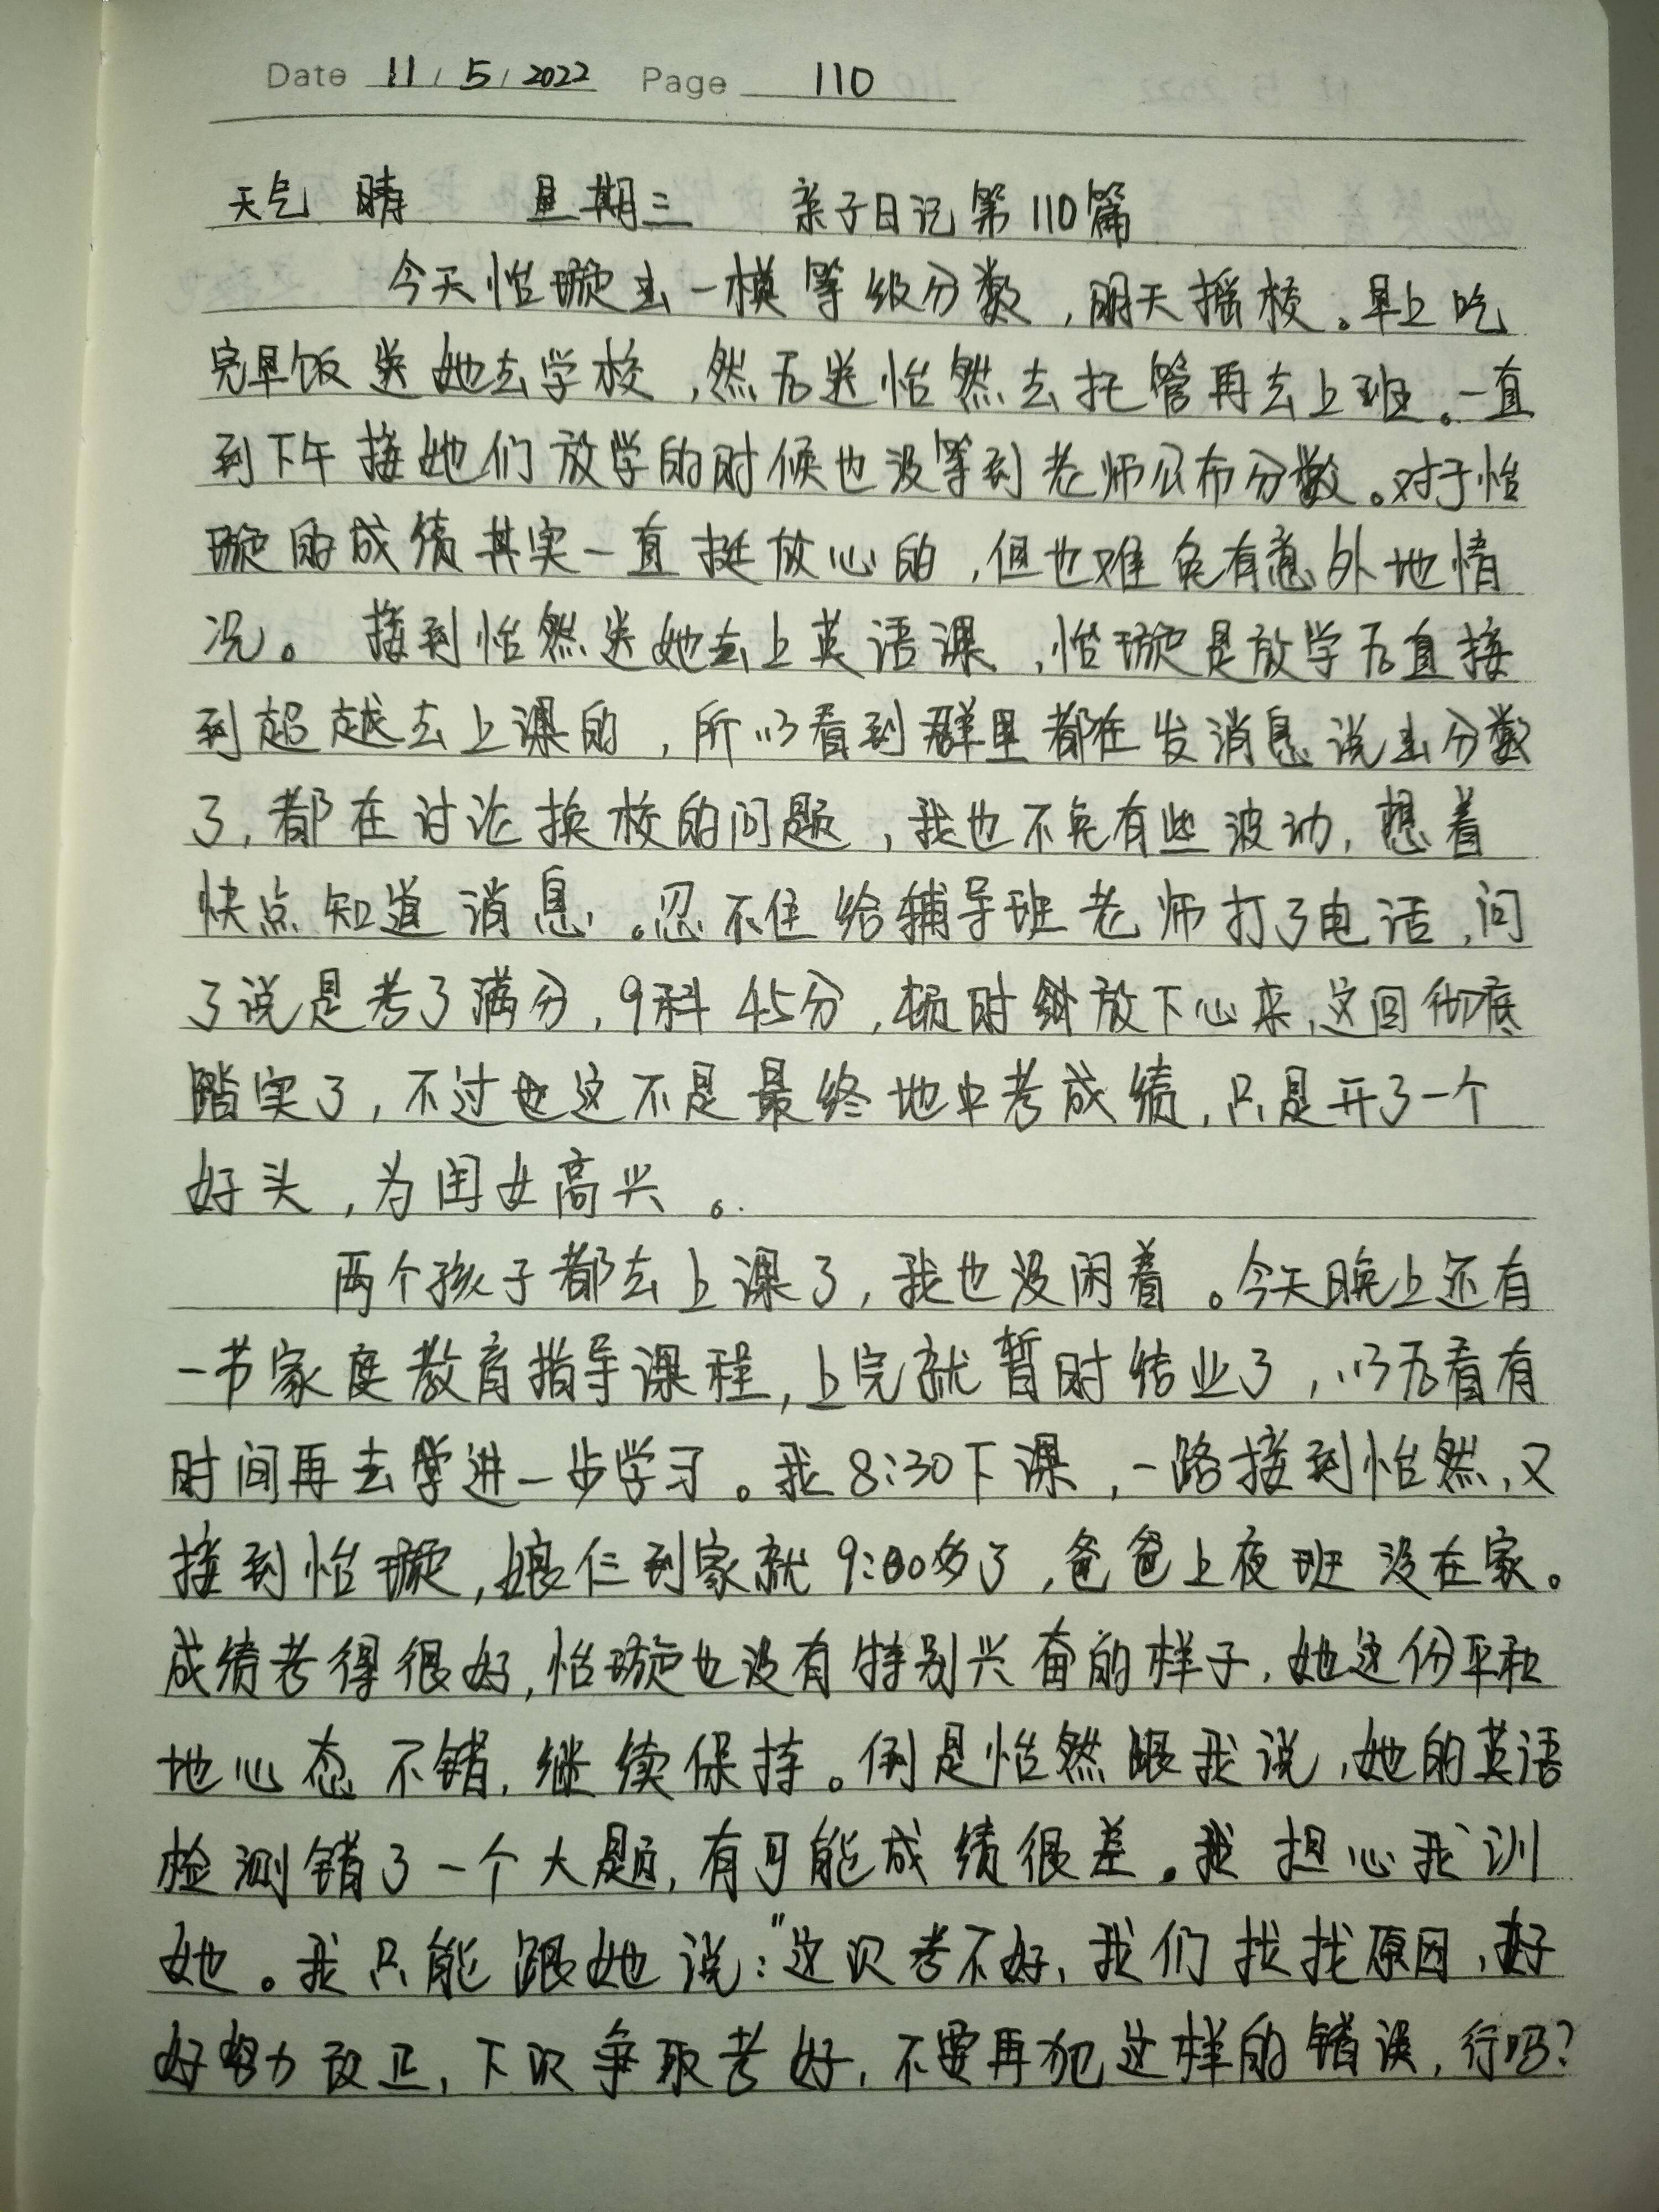 Date 11 / 5 / 2022 Page 110
天气 晴 星期三 亲子日记第110篇
今天怡璇出一模等级分数，明天摇校。早上吃
完早饭送她去学校，然后送怡然去托管再去上班。一直
到下午接她们放学的时候也没等到老师公布分数。对于怡
璇的成绩其实一直挺放心的，但也难免有意外地情
况。接到怡然送她去上英语课，怡璇是放学后直接
到超越去上课的，所以看到群里都在发消息说出分数
了，都在讨论换校的问题，我也不免有些波动，想着
快点知道消息。忍不住给辅导班老师打了电话，问
了说是考了满分，9科45分，顿时放下心来，这回彻底
踏实了，不过也这不是最终地中考成绩，只是开了一个
好头，为闺女高兴。
两个孩子都去上课了，我也没闲着。今天晚上还有
一节家庭教育指导课程，上完就暂时结业了，以后看有
时间再去学进一步学习。我8:30下课，一路接到怡然，又
接到怡璇，娘仨到家就9:00多了，爸爸上夜班没在家。
成绩考得很好，怡璇也没有特别兴奋的样子，她这份平和
地心态不错，继续保持。倒是怡然跟我说，她的英语
检测错了一个大题，有可能成绩很差。我担心我训
她。我只能跟她说："这次考不好，我们找找原因，好
好努力改正，下次争取考好，不要再犯这样的错误，行吗?